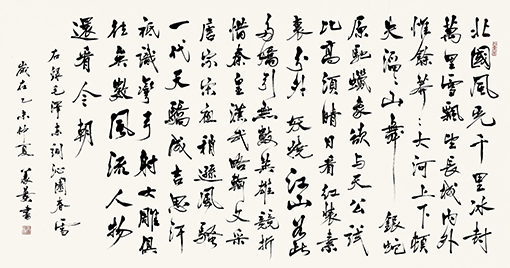 北國風光千里冰封
萬里雪飄望長城內外
惟餘莽〻大河上下頓
失滔〻山舞銀蛇
原馳蠟象欲与天公試
比高須晴日看紅裝素
裹分外妖嬈江山如此
多嬌引無數英雄競折
惜秦皇漢武略輸文采
唐宗宋祖稍遜風騷
一代天驕成吉思汗
祗識彎弓射大雕俱
往矣數風流人物
還看今朝
右錄毛澤東詞沁園春雪
歲在乙未仲夏書